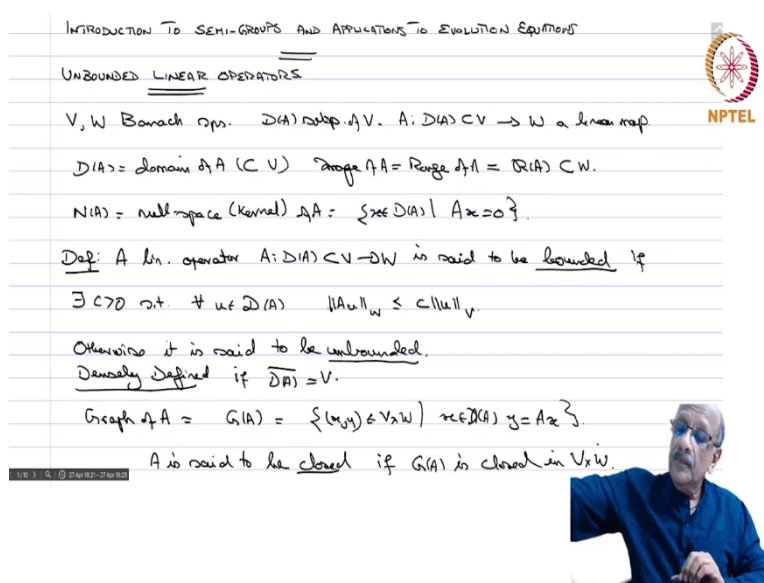 INTRODUCTION TO SEMI-GROUPS AND APPLICATIONS TO EVOLUTION EQUATIONS
NPTEL
UNBOUNDED LINEAR OPERATORS
V, W Banach sps. D(A) subsp. of V. A: D(A) ⊂ V → W a linear map
D(A) = domain of A (⊂ V) Image of A = Range of A = R(A) ⊂ W.
N(A) = null-space (kernel) of A = {x ∈ D(A) | Ax = 0}.
Def: A lin. operator A: D(A) ⊂ V → W is said to be bounded if
∃ C>0 s.t. ∀ u ∈ D(A) ||Au||_W ≤ C||u||_V.
Otherwise it is said to be unbounded.
Densely Defined if \overline{D(A)} = V.
Graph of A = G(A) = {(x,y) ∈ V×W | x ∈ D(A) y = Ax}.
A is said to be closed if G(A) is closed in V×W.
1/10 27 Apr 18:21–27 Apr 18:26